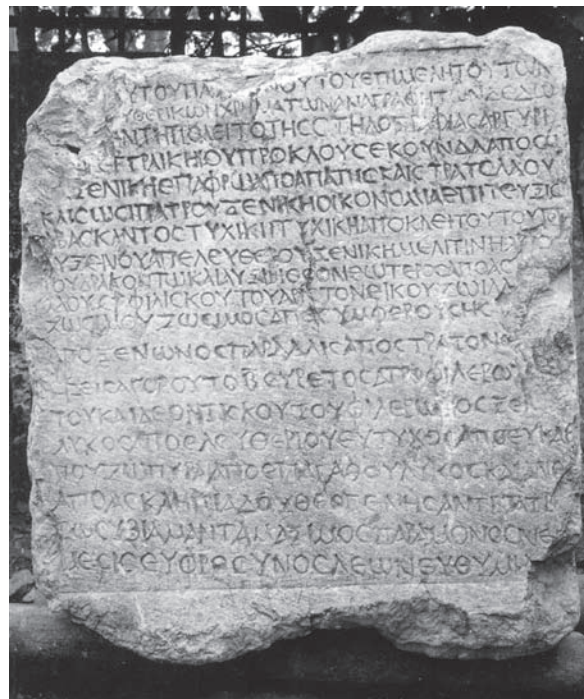 ΥΤΟΥΠΑ ΝΟΥΤΟΥΕΠΙΜΕΛΗΤΟΥΤΩΝ
ΥΘΕΡΙΚΩΝΧΡΗΜΑΤΩΝΑΝΑΓΡΑΦΗΤΩΝΔΕΔΩ
ΑΝΤΗΠΟΛΕΙΤΟΤΗϹϹΤΗΛΟΓΡΑΦΙΑϹΑΡΓΥΡΙ
ΕΤΡΑΙΚΗΙΟΥΠΡΟΚΛΟΥϹΕΚΟΥΝΔΑΑΠΟϹΩ
ΞΕΝΙΚΗΕΠΑΦΡΩΑΠΟΑΠΑΤΗϹΚΑΙϹΤΡΑΤΟΛΑΟΥ
ΚΑΙϹΩϹΙΠΑΤΡΟΥΞΕΝΙΚΗΟΙΚΟΝΟΜΙΑΕΠΙΤΕΥΞΙϹ
ΒΑϹΚΑΝΤΟϹΤΥΧΙΚΙΙΤΥΧΙΚΗΑΠΟΚΛΕΙΤΟΥΤΟΥ
ΥΞΕΝΟΥΑΠΕΛΕΥΘΕΡΟΥΞΕΝΙΚΗΜΕΛΙΤΙΝΗΑΠΟ
ΟΥΔΡΑΚΟΝΤΩΚΑΙΛΥ ΝΕΩΤΕΡΟϹΑΠΟΑϹ
ΛΟΥϹΤΡΟΦΙΛΙϹΚΟΥΤΟΥΑΡΙϹΤΟΝΕΙΚΟΥΖΩΙΛ
ΖΩΤΙΜΟΥΖΩϹΙΜΟϹΑΠΟϹΥΜΦΕΡΟΥϹΗϹ
ΑΠΟΞΕΝΩΝΟϹΠΑΡΔΑΛΙϹΑΠΟϹΤΡΑΤΟΝΟ
ΕΞΕΙϹΑΓΟΡΟΥΤΟΒΕΥΡΕΤΟϹΑΠΟΦΙΛΕΡΩ
ΤΟΥΚΑΙΛΕΟΝΤΙϹΚΟΥΤΟΥΦΙΛΕΡΩΤΟϹΞΕΝ
ΛΥΚΟϹΑΠΟΕΛΕΥΘΕΡΙΟΥΕΥΤΥΧΟϹΑΠΟΕΥΚΛΕ
ΠΟΥΖΩΠΥΡΑΑΠΟΕΠΑΓΑΘΟΥΛΥΚΟϹΚΑΙ
ΑΠΟΑϹΚΛΗΠΙΑΔΟΥΘΕΟΓΕΝΗϹΑΝΤΙΠΑΤ
ΖΩϹΙΜΟϹΠΑΡΑΜΟΝΟϹΝΕ
ΜΕϹΙϹΕΥΦΡΟϹΥΝΟϹΛΕΩΝΕΥΘΥΜ